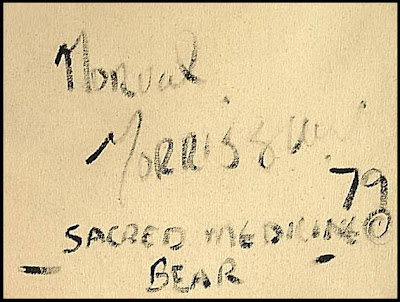 Norval
Morrisseau
79
SACRED MEDICINE ©
BEAR